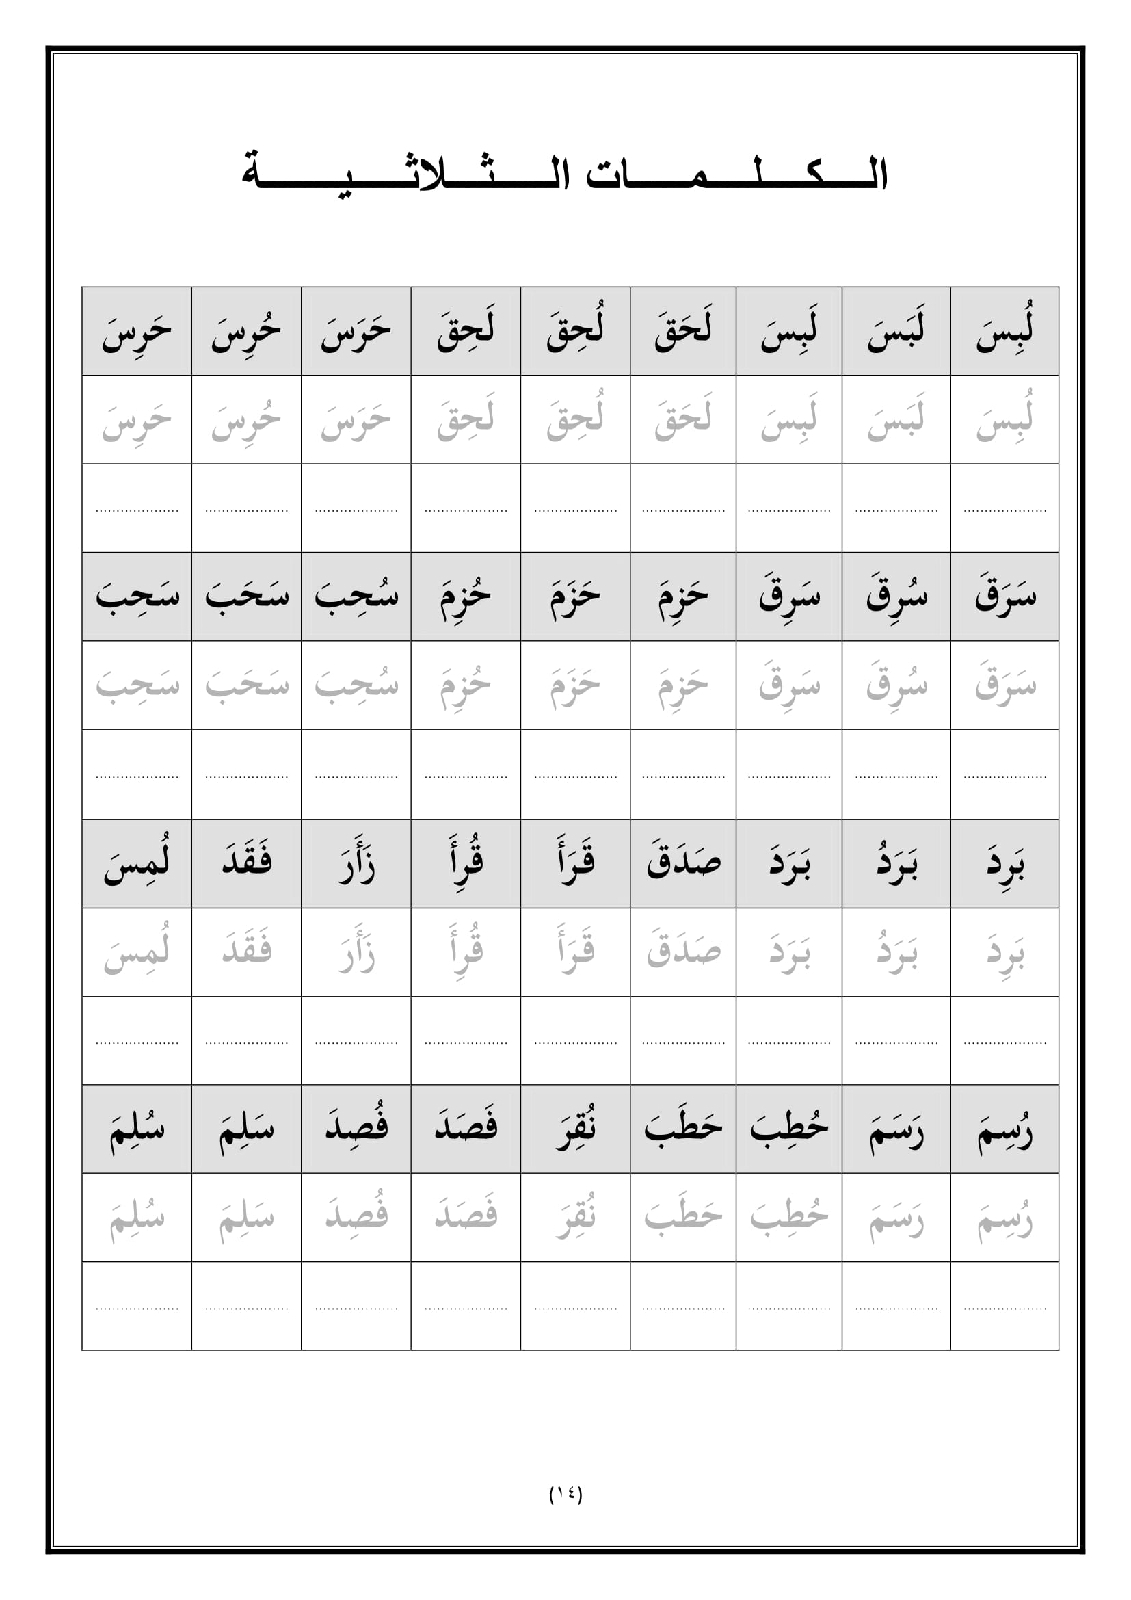 الـــكـــلـــمـــات الـــثـــلاثـــيـــة
لُبِسَ لَبَسَ لَبِسَ لَحَقَ لُحِقَ لَحِقَ حَرَسَ حُرِسَ حَرِسَ
لُبِسَ لَبَسَ لَبِسَ لَحَقَ لُحِقَ لَحِقَ حَرَسَ حُرِسَ حَرِسَ
سَرَقَ سُرِقَ سَرِقَ حَزِمَ حَزَمَ حُزِمَ سُحِبَ سَحَبَ سَحِبَ
سَرَقَ سُرِقَ سَرِقَ حَزِمَ حَزَمَ حُزِمَ سُحِبَ سَحَبَ سَحِبَ
بَرِدَ بَرَدُ بَرَدَ صَدَقَ قَرَأَ قُرِأَ زَأَرَ فَقَدَ لُمِسَ
بَرِدَ بَرَدُ بَرَدَ صَدَقَ قَرَأَ قُرِأَ زَأَرَ فَقَدَ لُمِسَ
رُسِمَ رَسَمَ حُطِبَ حَطَبَ نُقِرَ فَصَدَ فُصِدَ سَلِمَ سُلِمَ
رُسِمَ رَسَمَ حُطِبَ حَطَبَ نُقِرَ فَصَدَ فُصِدَ سَلِمَ سُلِمَ
(١٤)